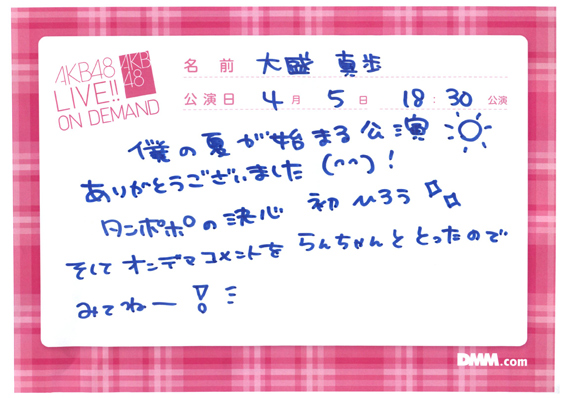 AKB48
LIVE!!
ON DEMAND
AKB
48
名前 大盛 真歩
公演日 4月 5日 18:30 公演
僕の夏が始まる公演
ありがとうございました (^^)!
タンポポの決心 初ひろう
そして オンデマコメントを らんちゃんと とったので
みてねー!
DMM.com